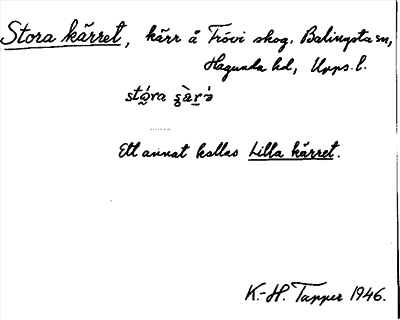 Stora kärret, kärr å Frövi skog. Balingsta sn,
Hagunda hd, Upps. l.
Ett annat kallas Lilla kärret.
K.-H. Tapper 1946.